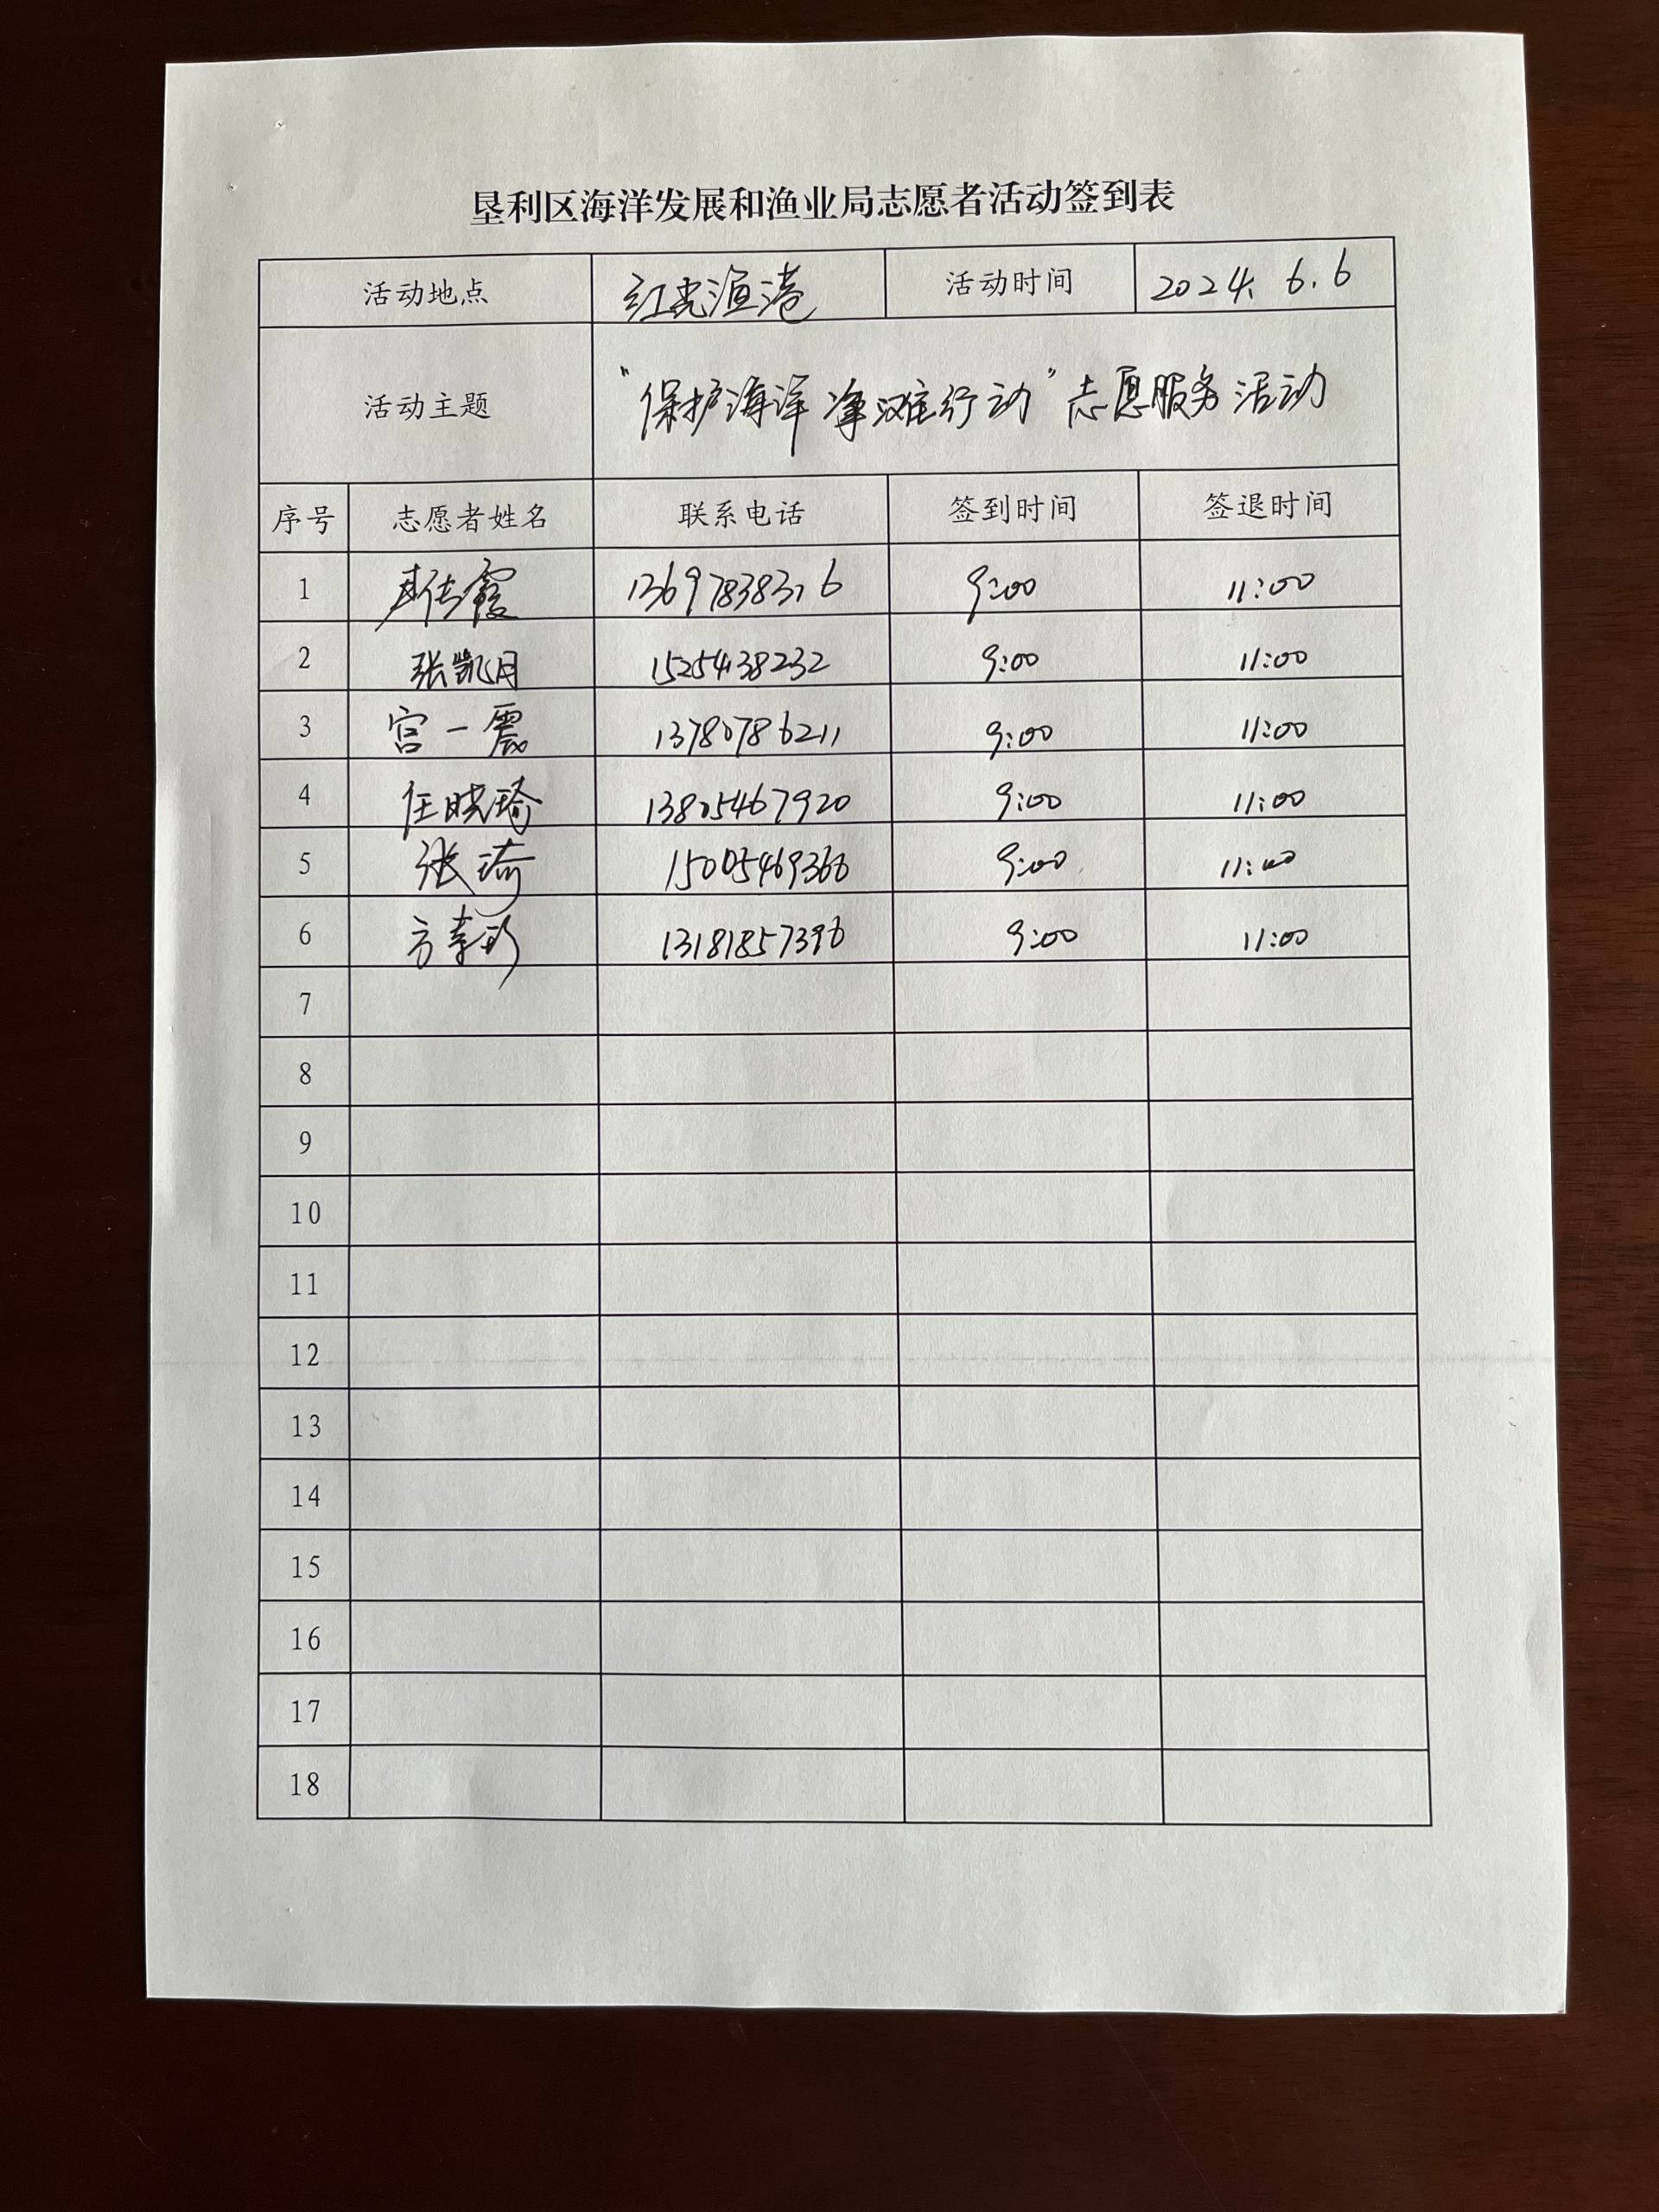 垦利区海洋发展和渔业局志愿者活动签到表
活动地点 红光渔港 活动时间 2024.6.6
活动主题 "保护海洋 净滩行动"志愿服务活动
序号 志愿者姓名 联系电话 签到时间 签退时间
1 9:00 11:00
2 张凯月 15254638232 9:00 11:00
3 宫一震 13780786211 9:00 11:00
4 任晓瑜 13805467920 9:00 11:00
5 张琦 15005469366 9:00 11:00
6 13181857396 9:00 11:00
7
8
9
10
11
12
13
14
15
16
17
18